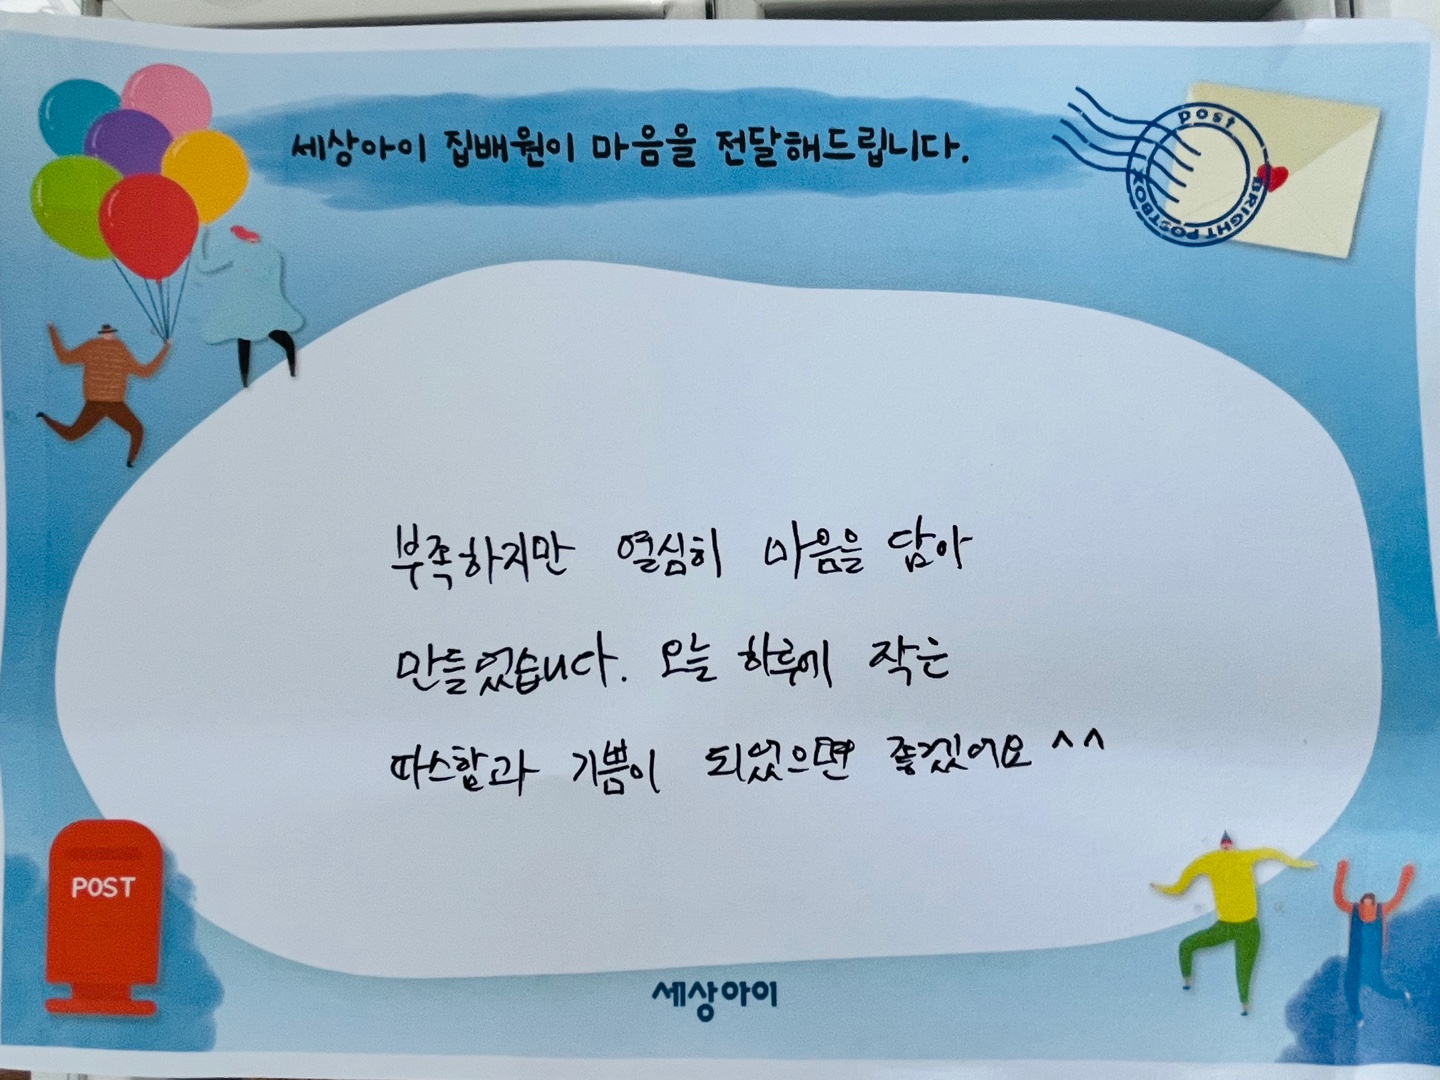 세상아이 집배원이 마음을 전달해드립니다.
post
BRIGHT POSTBOX
부족하지만 열심히 마음을 담아
만들었습니다. 오늘 하루에 작은
따스함과 기쁨이 되었으면 좋겠어요 ^^
POST
세상아이